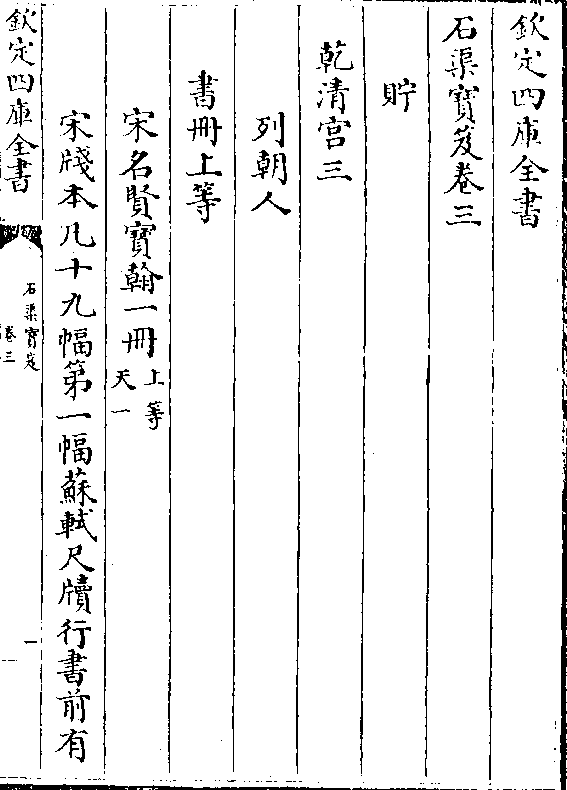 欽定四庫全書
石渠寶笈卷三
貯
乾清宮三
列朝人
書冊上等
宋名賢寶翰一冊上等天一
宋牋本凡十九幅第一幅蘇軾尺牘行書前有
欽定四庫全書
石渠寶笈
卷三
一